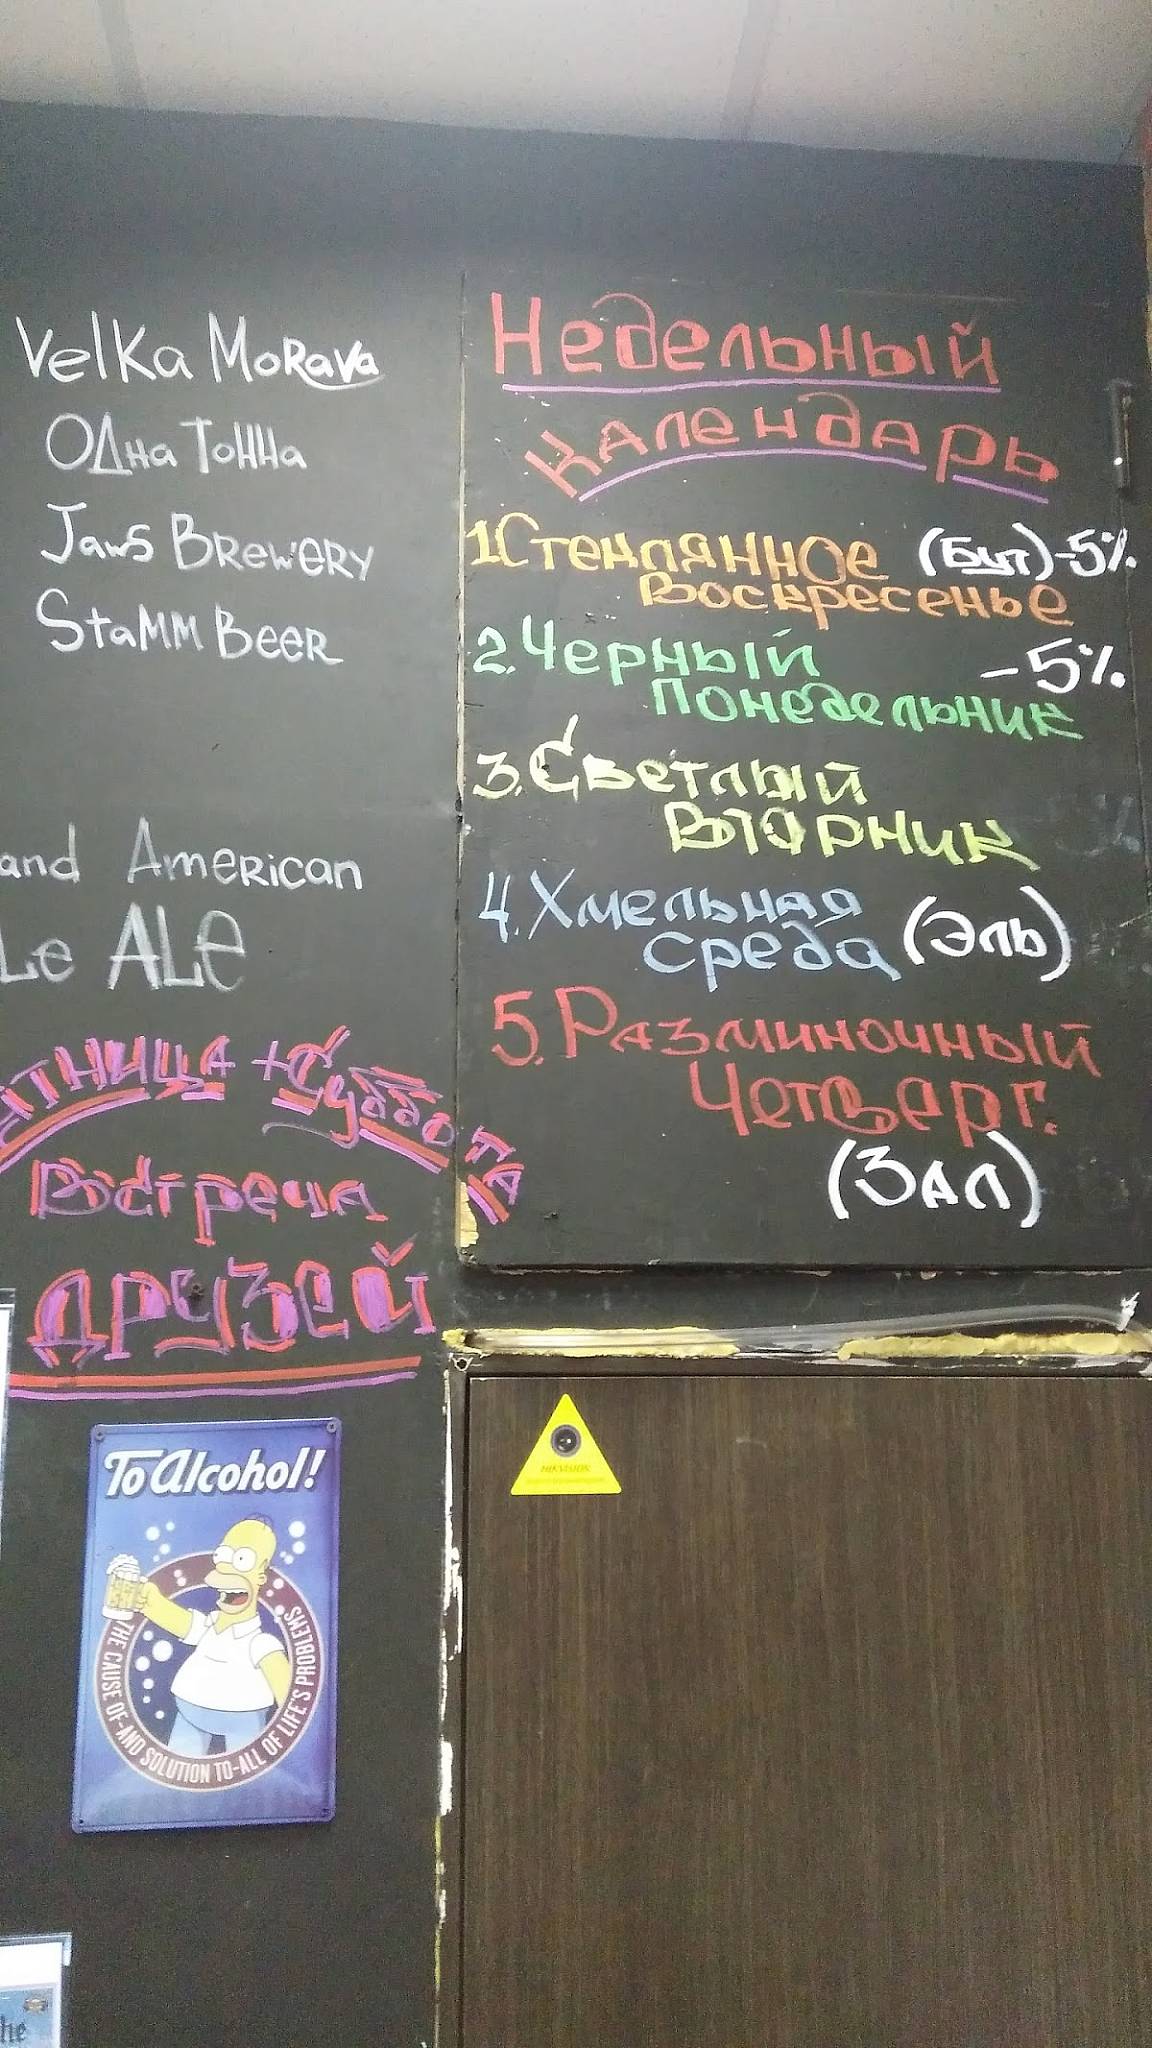 Velka Morava
Одна Тонна
Jaws Brewery
Stamm Beer
and American
Le ALe
тница + Суббота
Встреча
друзей
To Alcohol!
THE CAUSE OF-AND SOLUTION TO-ALL OF LIFE'S PROBLEMS
he
Недельный
календарь
1.Стеклянное (Бут) -5%
Воскресенье
2.Черный -5%
Понедельник
3.Светлый
Вторник
4.Хмельная
среда (Эль)
5.Разминочный
Четверг.
(Зал)
HIKVISION